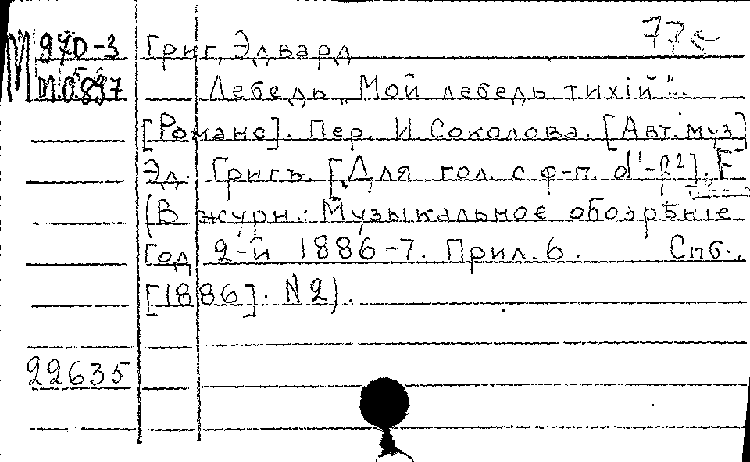 77
97D-3 Григ, Эдвард
Лебедь „Мой лебедь тихій".
[Романс]. Пер. И Соколова. [Авт. муз]
Эд. Григъ. [Для гол. с ф-п. d¹-f²]. F
(В журн.: Музыкальное обозрѣніе
Год 2-й 1886-7. Прил. 6. Спб.,
[1886]. N 2).
22635